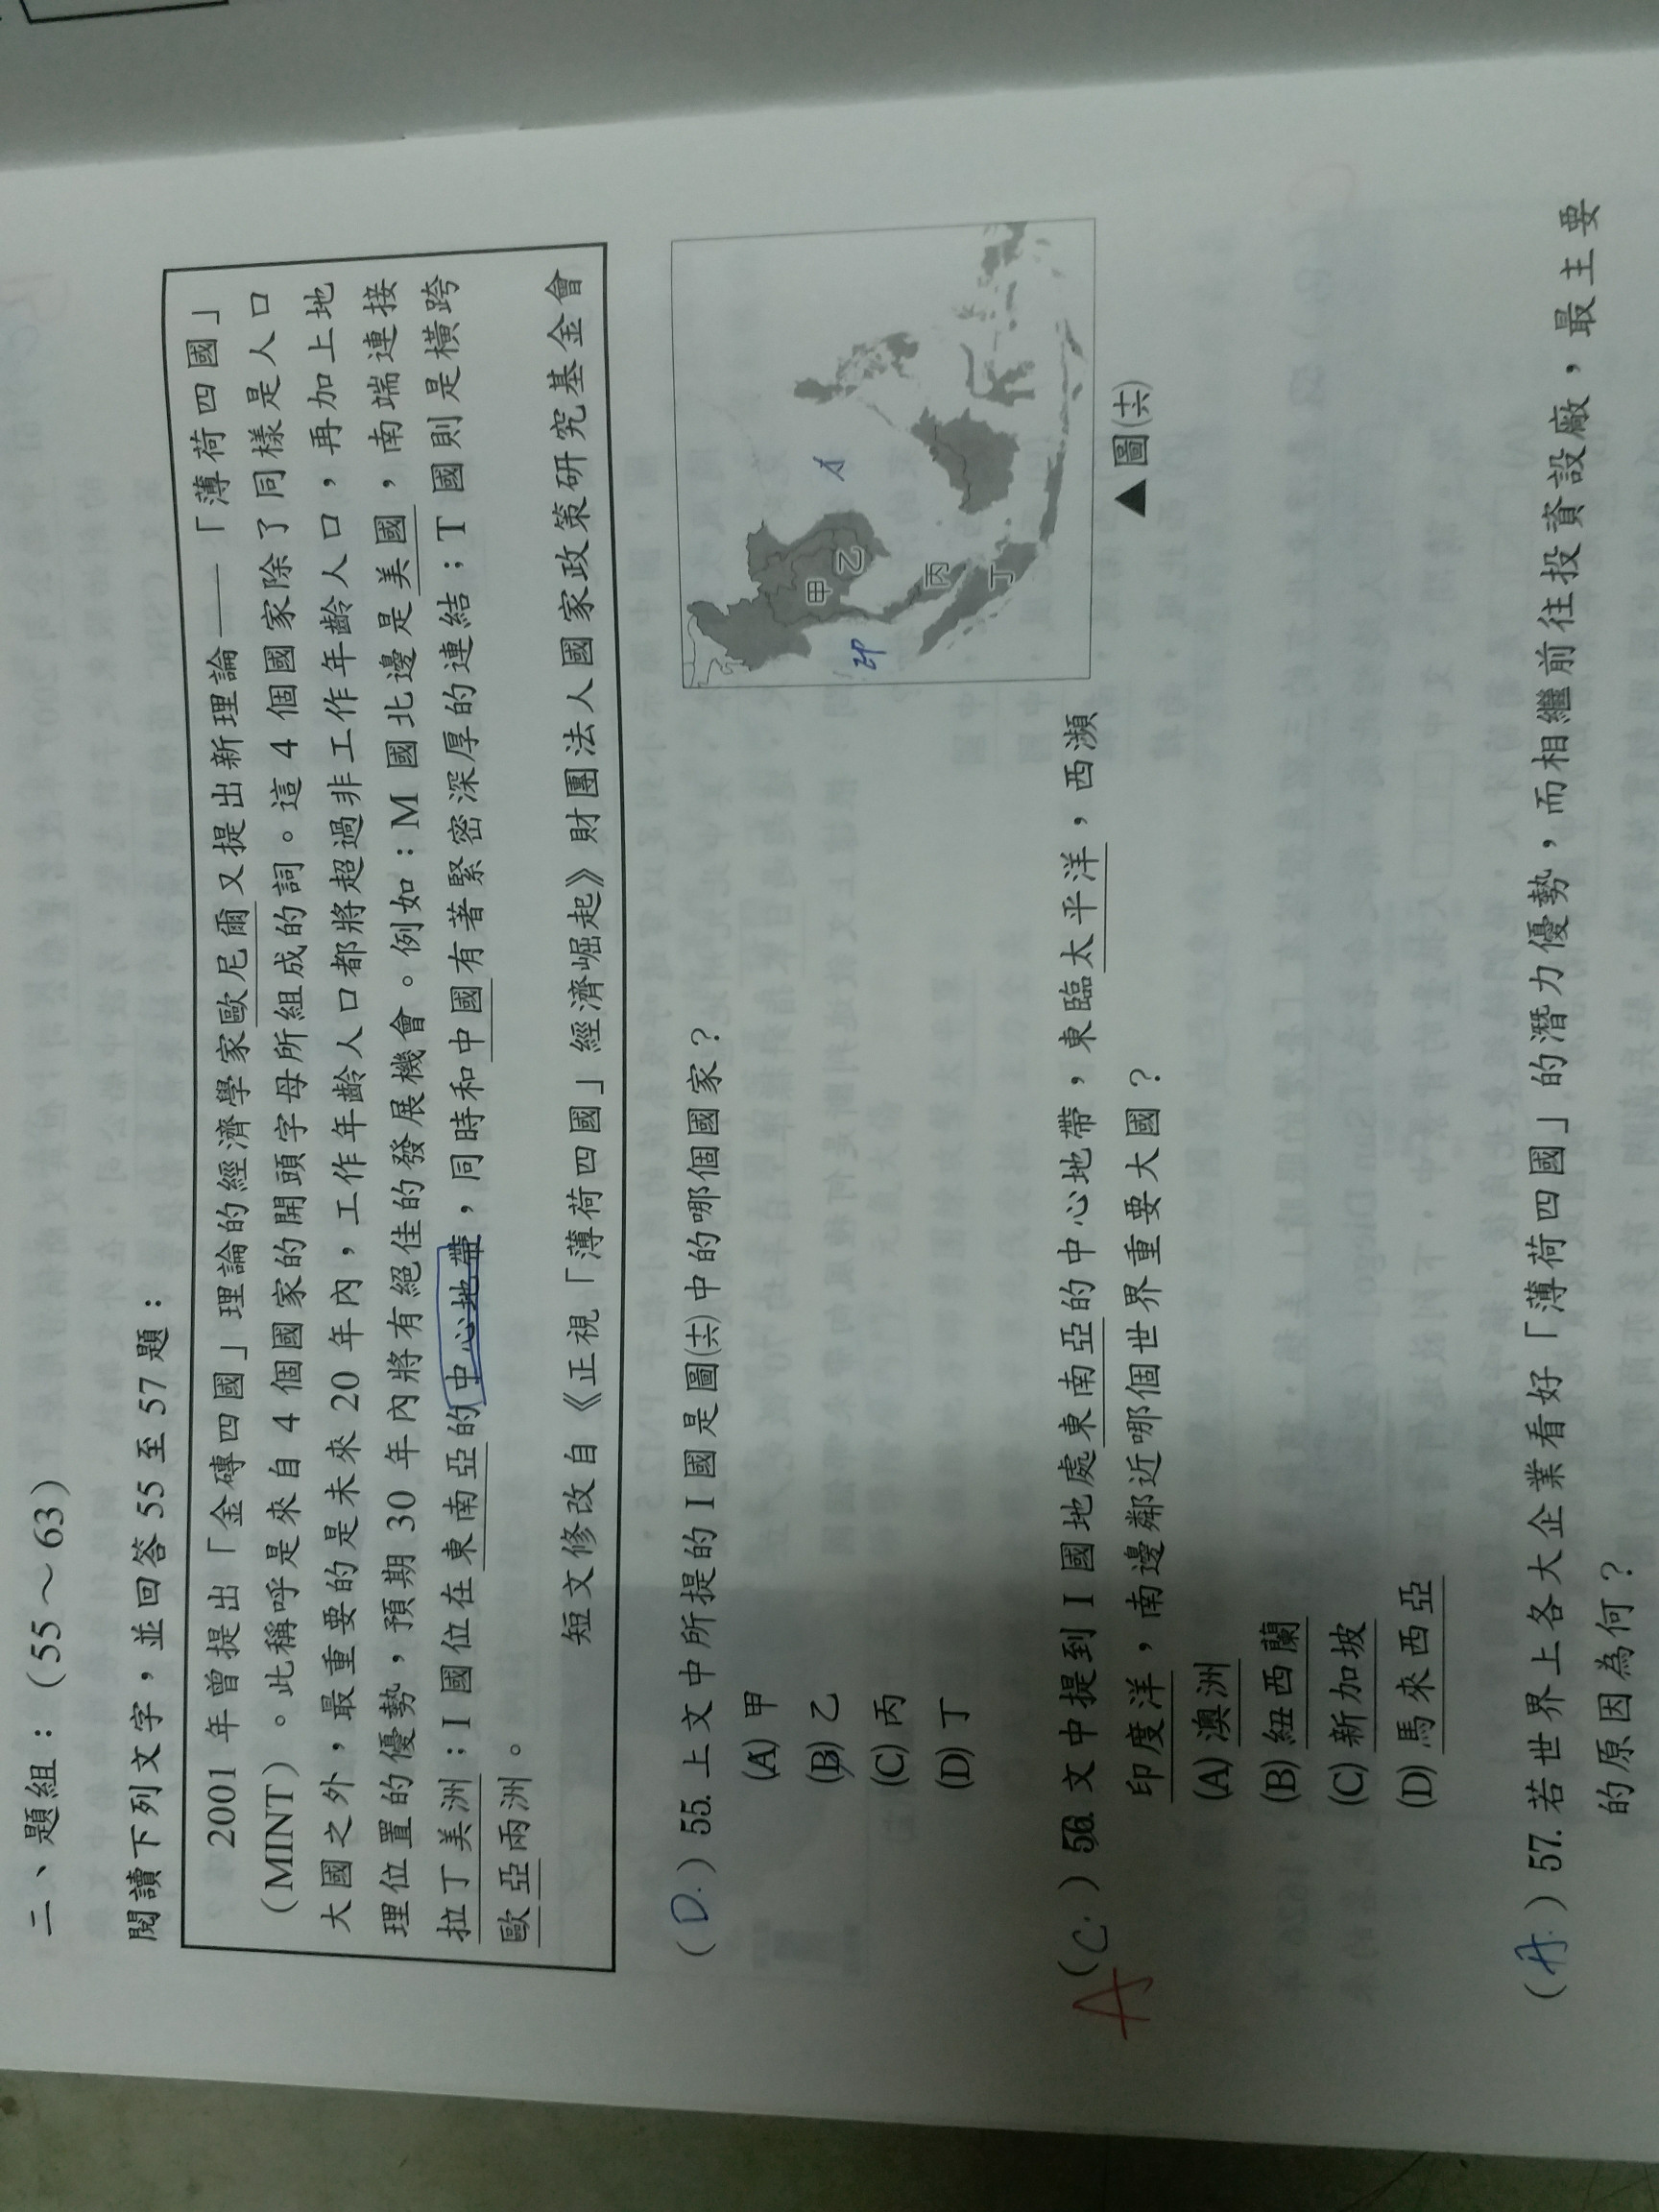 二、題組：（55～63）
閱讀下列文字，並回答 55 至 57 題：
2001 年曾提出「金磚四國」理論的經濟學家歐尼爾又提出新理論——「薄荷四國」
（MINT）。此稱呼是來自 4 個國家的開頭字母所組成的詞。這 4 個國家除了同樣是人口
大國之外，最重要的是未來 20 年內，工作年齡人口都將超過非工作年齡人口，再加上地
理位置的優勢，預期 30 年內將有絕佳的發展機會。例如：M 國北邊是美國，南端連接
拉丁美洲；I 國位在東南亞的中心地帶，同時和中國有著緊密深厚的連結；T 國則是橫跨
歐亞兩洲。
短文修改自《正視「薄荷四國」經濟崛起》財團法人國家政策研究基金會
（D.）55. 上文中所提的 I 國是圖(六)中的哪個國家？
(A) 甲
(B) 乙
(C) 丙
(D) 丁
甲
乙
丙
丁
印
太
▲圖(六)
A（C.）56. 文中提到 I 國地處東南亞的中心地帶，東臨太平洋，西瀕
印度洋，南邊鄰近哪個世界重要大國？
(A) 澳洲
(B) 紐西蘭
(C) 新加坡
(D) 馬來西亞
（A.）57. 若世界上各大企業看好「薄荷四國」的潛力優勢，而相繼前往投資設廠，最主要
的原因為何？